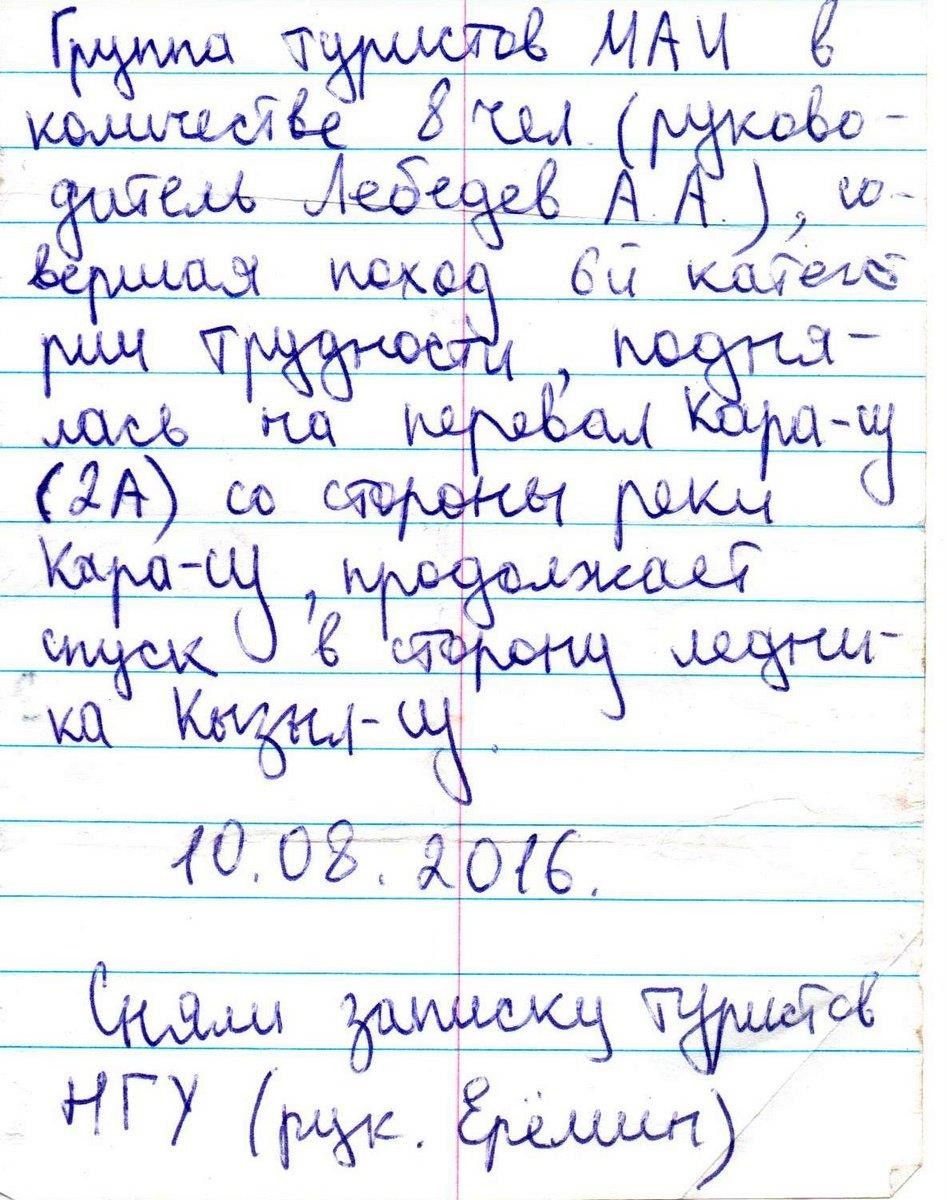 Группа туристов МАИ в
количестве 8 чел. (руково-
дитель Лебедев А.А.), со-
вершая поход 6й катего
рии трудности, подня-
лась на перевал Кара-Щ
(2А) со стороны реки
Кара-Щ, продолжает
спуск в сторону ледни-
-ка Кызыл-Щ.
10.08.2016.
Сняли записку туристов
НГУ (рук. Ерёмин)